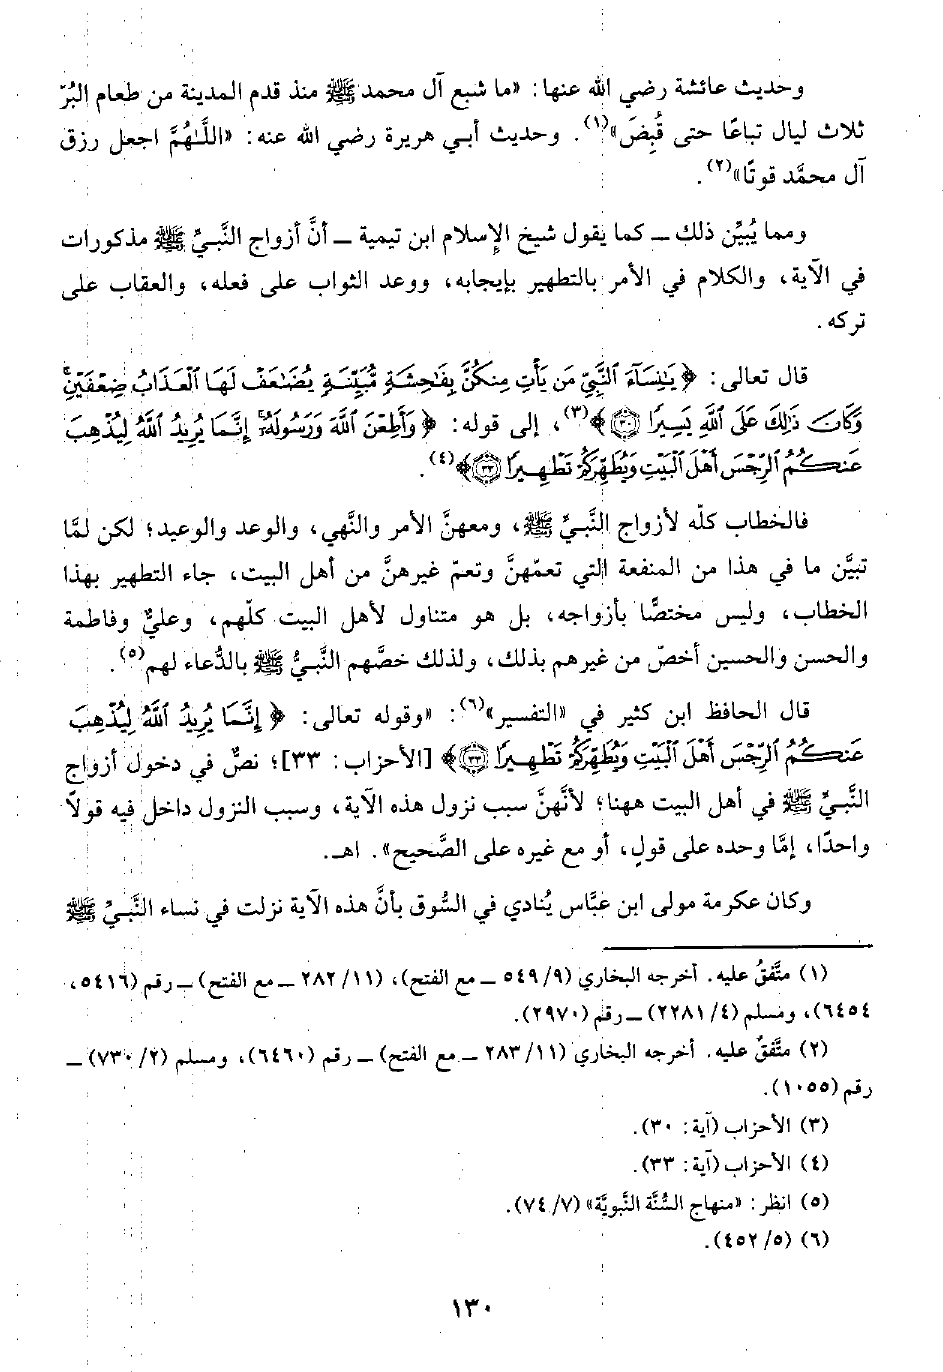 وحديث عائشة رضي الله عنها: «ما شبع آل محمد ﷺ منذ قدم المدينة من طعام البُرّ
ثلاث ليال تباعًا حتى قُبِضَ»(١). وحديث أبي هريرة رضي الله عنه: «اللَّـٰهُمَّ اجعل رزق
آل محمَّد قوتًا»(٢).
ومما يُبيِّن ذلك ــ كما يقول شيخ الإسلام ابن تيمية ــ أنَّ أزواج النَّبيِّ ﷺ مذكورات
في الآية، والكلام في الأمر بالتطهير بإيجابه، ووعد الثواب على فعله، والعقاب على
تركه.
قال تعالى: ﴿يَٰنِسَآءَ ٱلنَّبِيِّ مَن يَأْتِ مِنكُنَّ بِفَٰحِشَةٍ مُّبَيِّنَةٍ يُضَٰعَفْ لَهَا ٱلْعَذَابُ ضِعْفَيْنِۚ
وَكَانَ ذَٰلِكَ عَلَى ٱللَّهِ يَسِيرًا ۝٣٠﴾(٣)، إلى قوله: ﴿وَأَطِعْنَ ٱللَّهَ وَرَسُولَهُۥٓۚ إِنَّمَا يُرِيدُ ٱللَّهُ لِيُذْهِبَ
عَنكُمُ ٱلرِّجْسَ أَهْلَ ٱلْبَيْتِ وَيُطَهِّرَكُمْ تَطْهِيرًا ۝٣٣﴾(٤).
فالخطاب كلّه لأزواج النَّبيِّ ﷺ، ومعهنَّ الأمر والنَّهي، والوعد والوعيد؛ لكن لمَّا
تبيَّن ما في هذا من المنفعة التي تعمّهنَّ وتعمّ غيرهنَّ من أهل البيت، جاء التطهير بهذا
الخطاب، وليس مختصًّا بأزواجه، بل هو متناول لأهل البيت كلّهم، وعليٌّ وفاطمة
والحسن والحسين أخصّ من غيرهم بذلك، ولذلك خصَّهم النَّبيُّ ﷺ بالدُّعاء لهم(٥).
قال الحافظ ابن كثير في «التفسير»(٦): «وقوله تعالى: ﴿إِنَّمَا يُرِيدُ ٱللَّهُ لِيُذْهِبَ
عَنكُمُ ٱلرِّجْسَ أَهْلَ ٱلْبَيْتِ وَيُطَهِّرَكُمْ تَطْهِيرًا ۝٣٣﴾ [الأحزاب: ٣٣]؛ نصٌّ في دخول أزواج
النَّبيِّ ﷺ في أهل البيت ههنا؛ لأنَّهنَّ سبب نزول هذه الآية، وسبب النزول داخل فيه قولاً
واحدًا، إمَّا وحده على قولٍ، أو مع غيره على الصَّحيح». اهـ.
وكان عكرمة مولى ابن عبَّاس يُنادي في السُّوق بأنَّ هذه الآية نزلت في نساء النَّبيِّ ﷺ
(١) متَّفقٌ عليه. أخرجه البخاري (٥٤٩/٩ ــ مع الفتح)، (٢٨٢/١١ ــ مع الفتح) ــ رقم (٥٤١٦،
٦٤٥٤)، ومسلم (٢٢٨١/٤) ــ رقم (٢٩٧٠).
(٢) متَّفقٌ عليه. أخرجه البخاري (٢٨٣/١١ ــ مع الفتح) ــ رقم (٦٤٦٠)، ومسلم (٧٣٠/٢) ــ
رقم (١٠٥٥).
(٣) الأحزاب (آية: ٣٠).
(٤) الأحزاب (آية: ٣٣).
(٥) انظر: «منهاج السُّنَّة النَّبويَّة» (٧٤/٧).
(٦) (٤٥٢/٥).
١٣٠